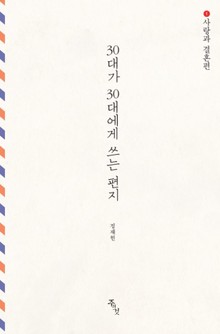 1 사랑과 결혼편
30대가 30대에게 쓰는 편지
정재헌